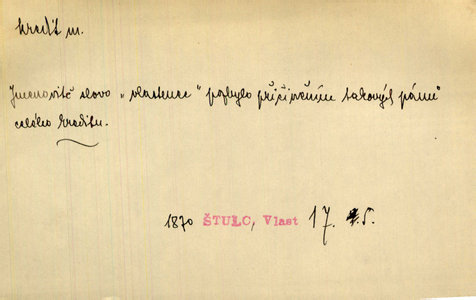 kredit m.
Jmenovitě slovo „vlastenec" pozbylo přičiněním takových pánů
celého kreditu.
1870 ŠTULC, Vlast 17. 1.5.